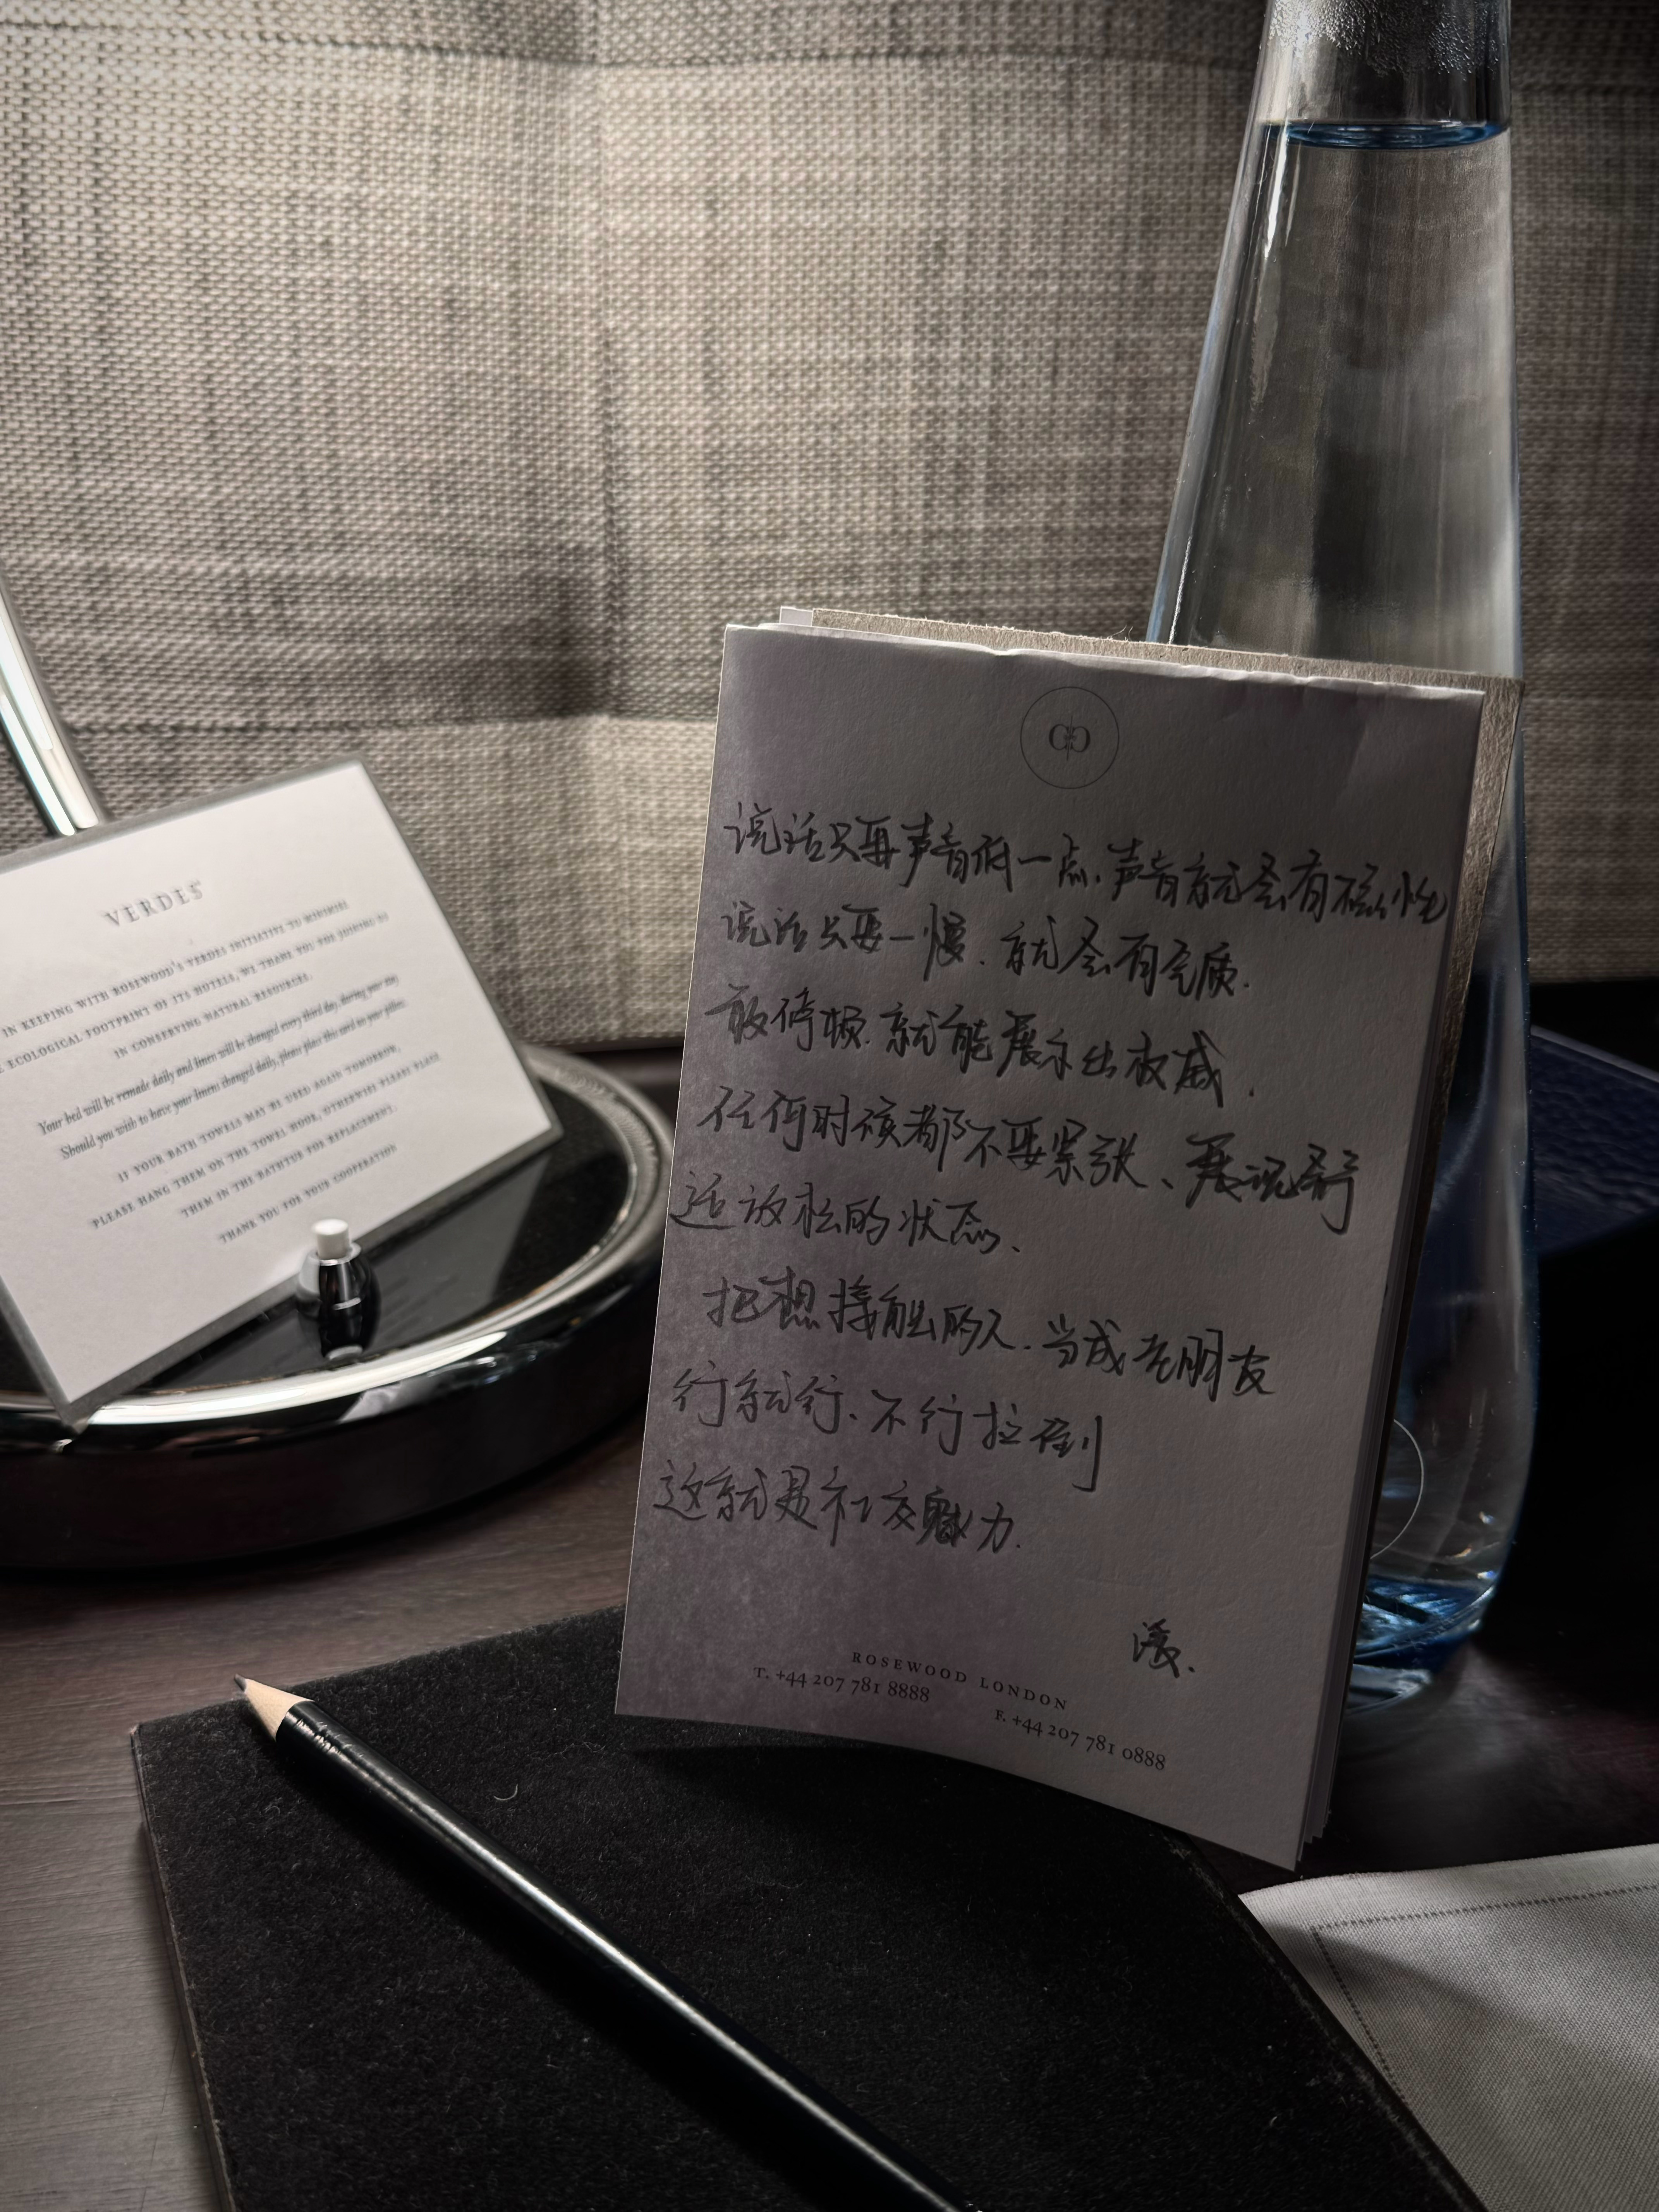 VERDES
IN KEEPING WITH ROSEWOOD'S VERDES INITIATIVE TO MINIMISE
ECOLOGICAL FOOTPRINT OF ITS HOTELS, WE THANK YOU FOR JOINING US
IN CONSERVING NATURAL RESOURCES.
Your bed will be remade daily and linen will be changed every third day, during your stay
Should you wish to have your linens changed daily, please place this card on your pillow.
IF YOUR BATH TOWELS MAY BE USED AGAIN TOMORROW,
PLEASE HANG THEM ON THE TOWEL HOOK, OTHERWISE PLEASE PLACE
THEM IN THE BATHTUB FOR REPLACEMENT.
THANK YOU FOR YOUR COOPERATION
说话只要声音低一点.声音就会有磁性
说话只要一慢.就会有气质.
敢停顿.就能展示出权威.
任何时候都不要紧张、展现舒
适放松的状态、
把想接触的人.当成老朋友
行就行、不行拉倒
这就是社交魅力.
ROSEWOOD LONDON
T. +44 207 781 8888
F. +44 207 781 0888